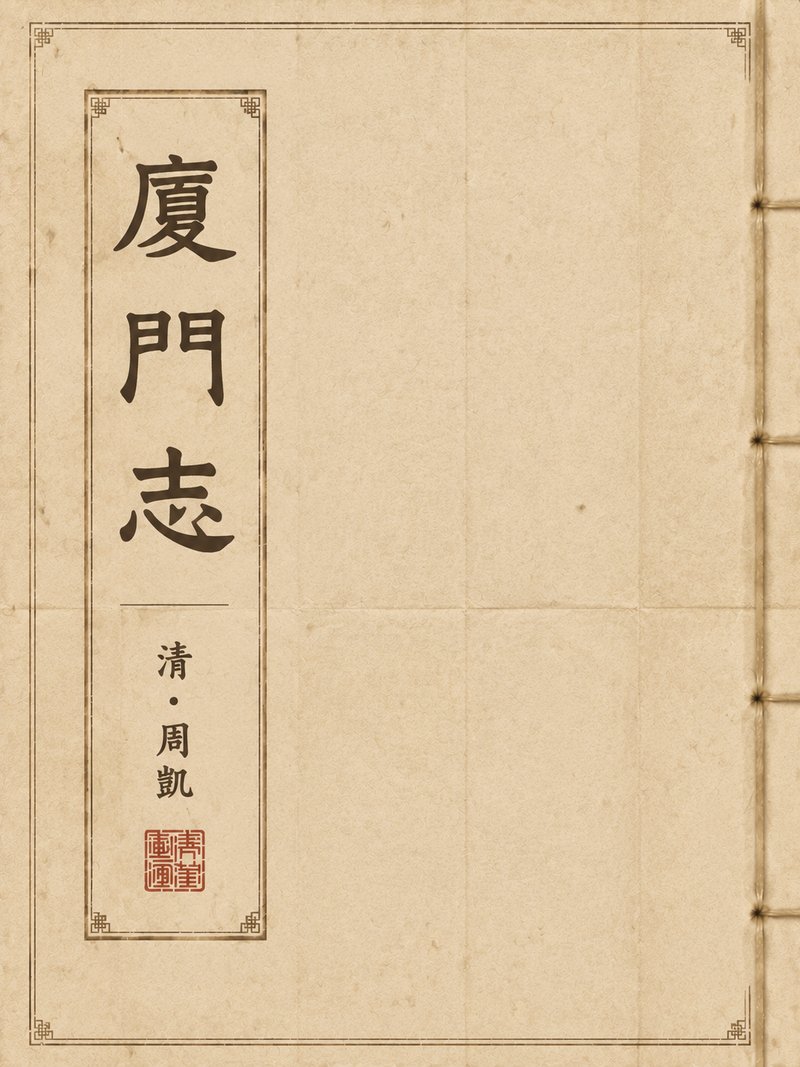 廈門志
清·周凱